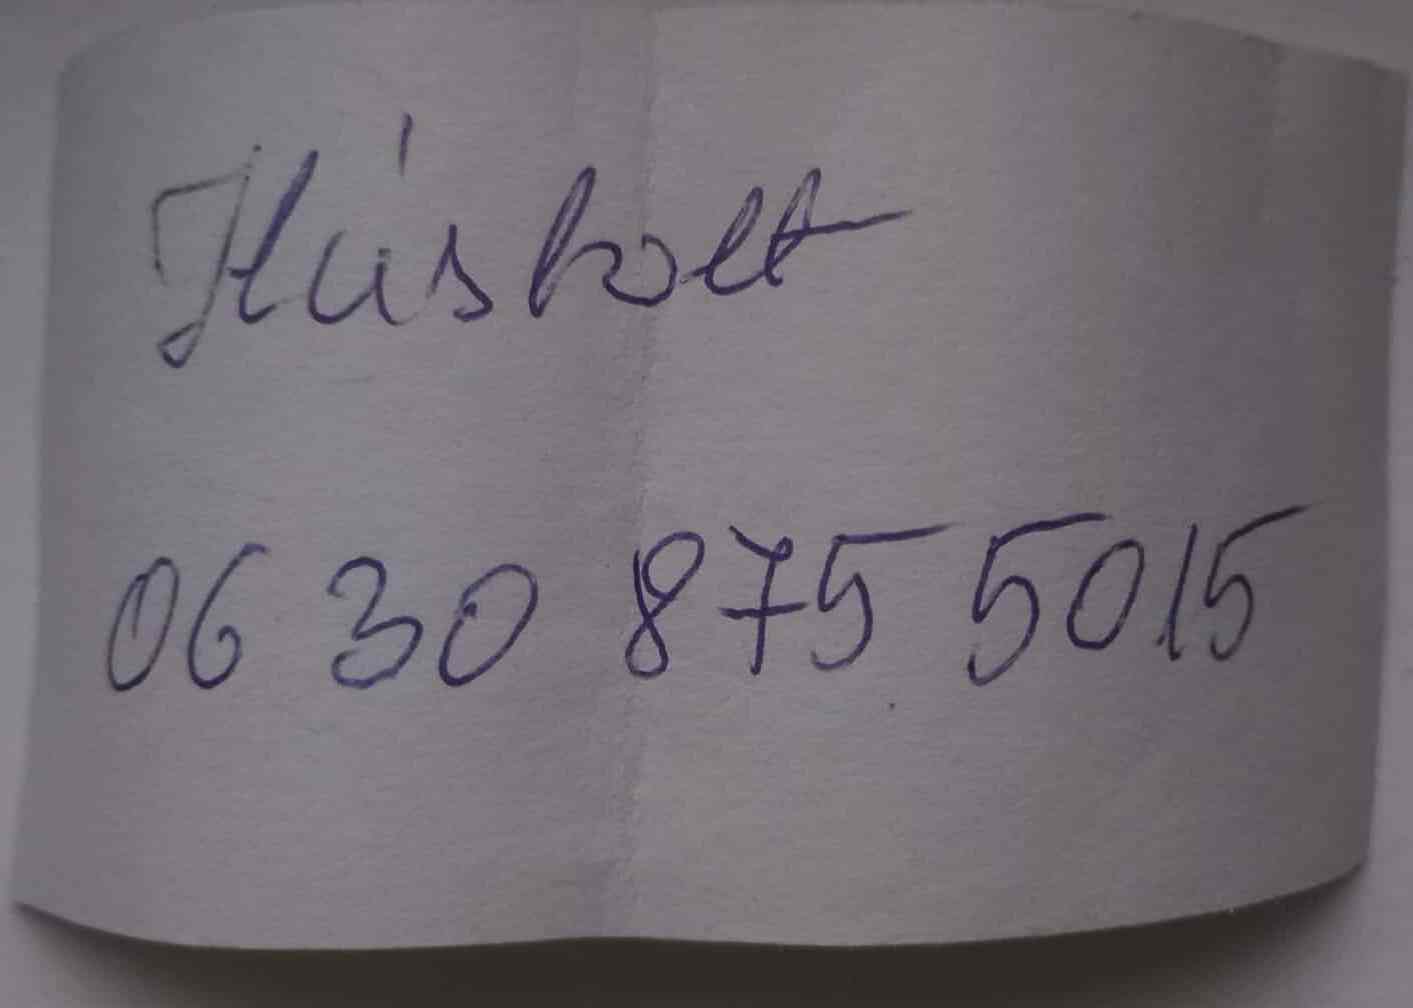 Húsbolt
06 30 875 5015